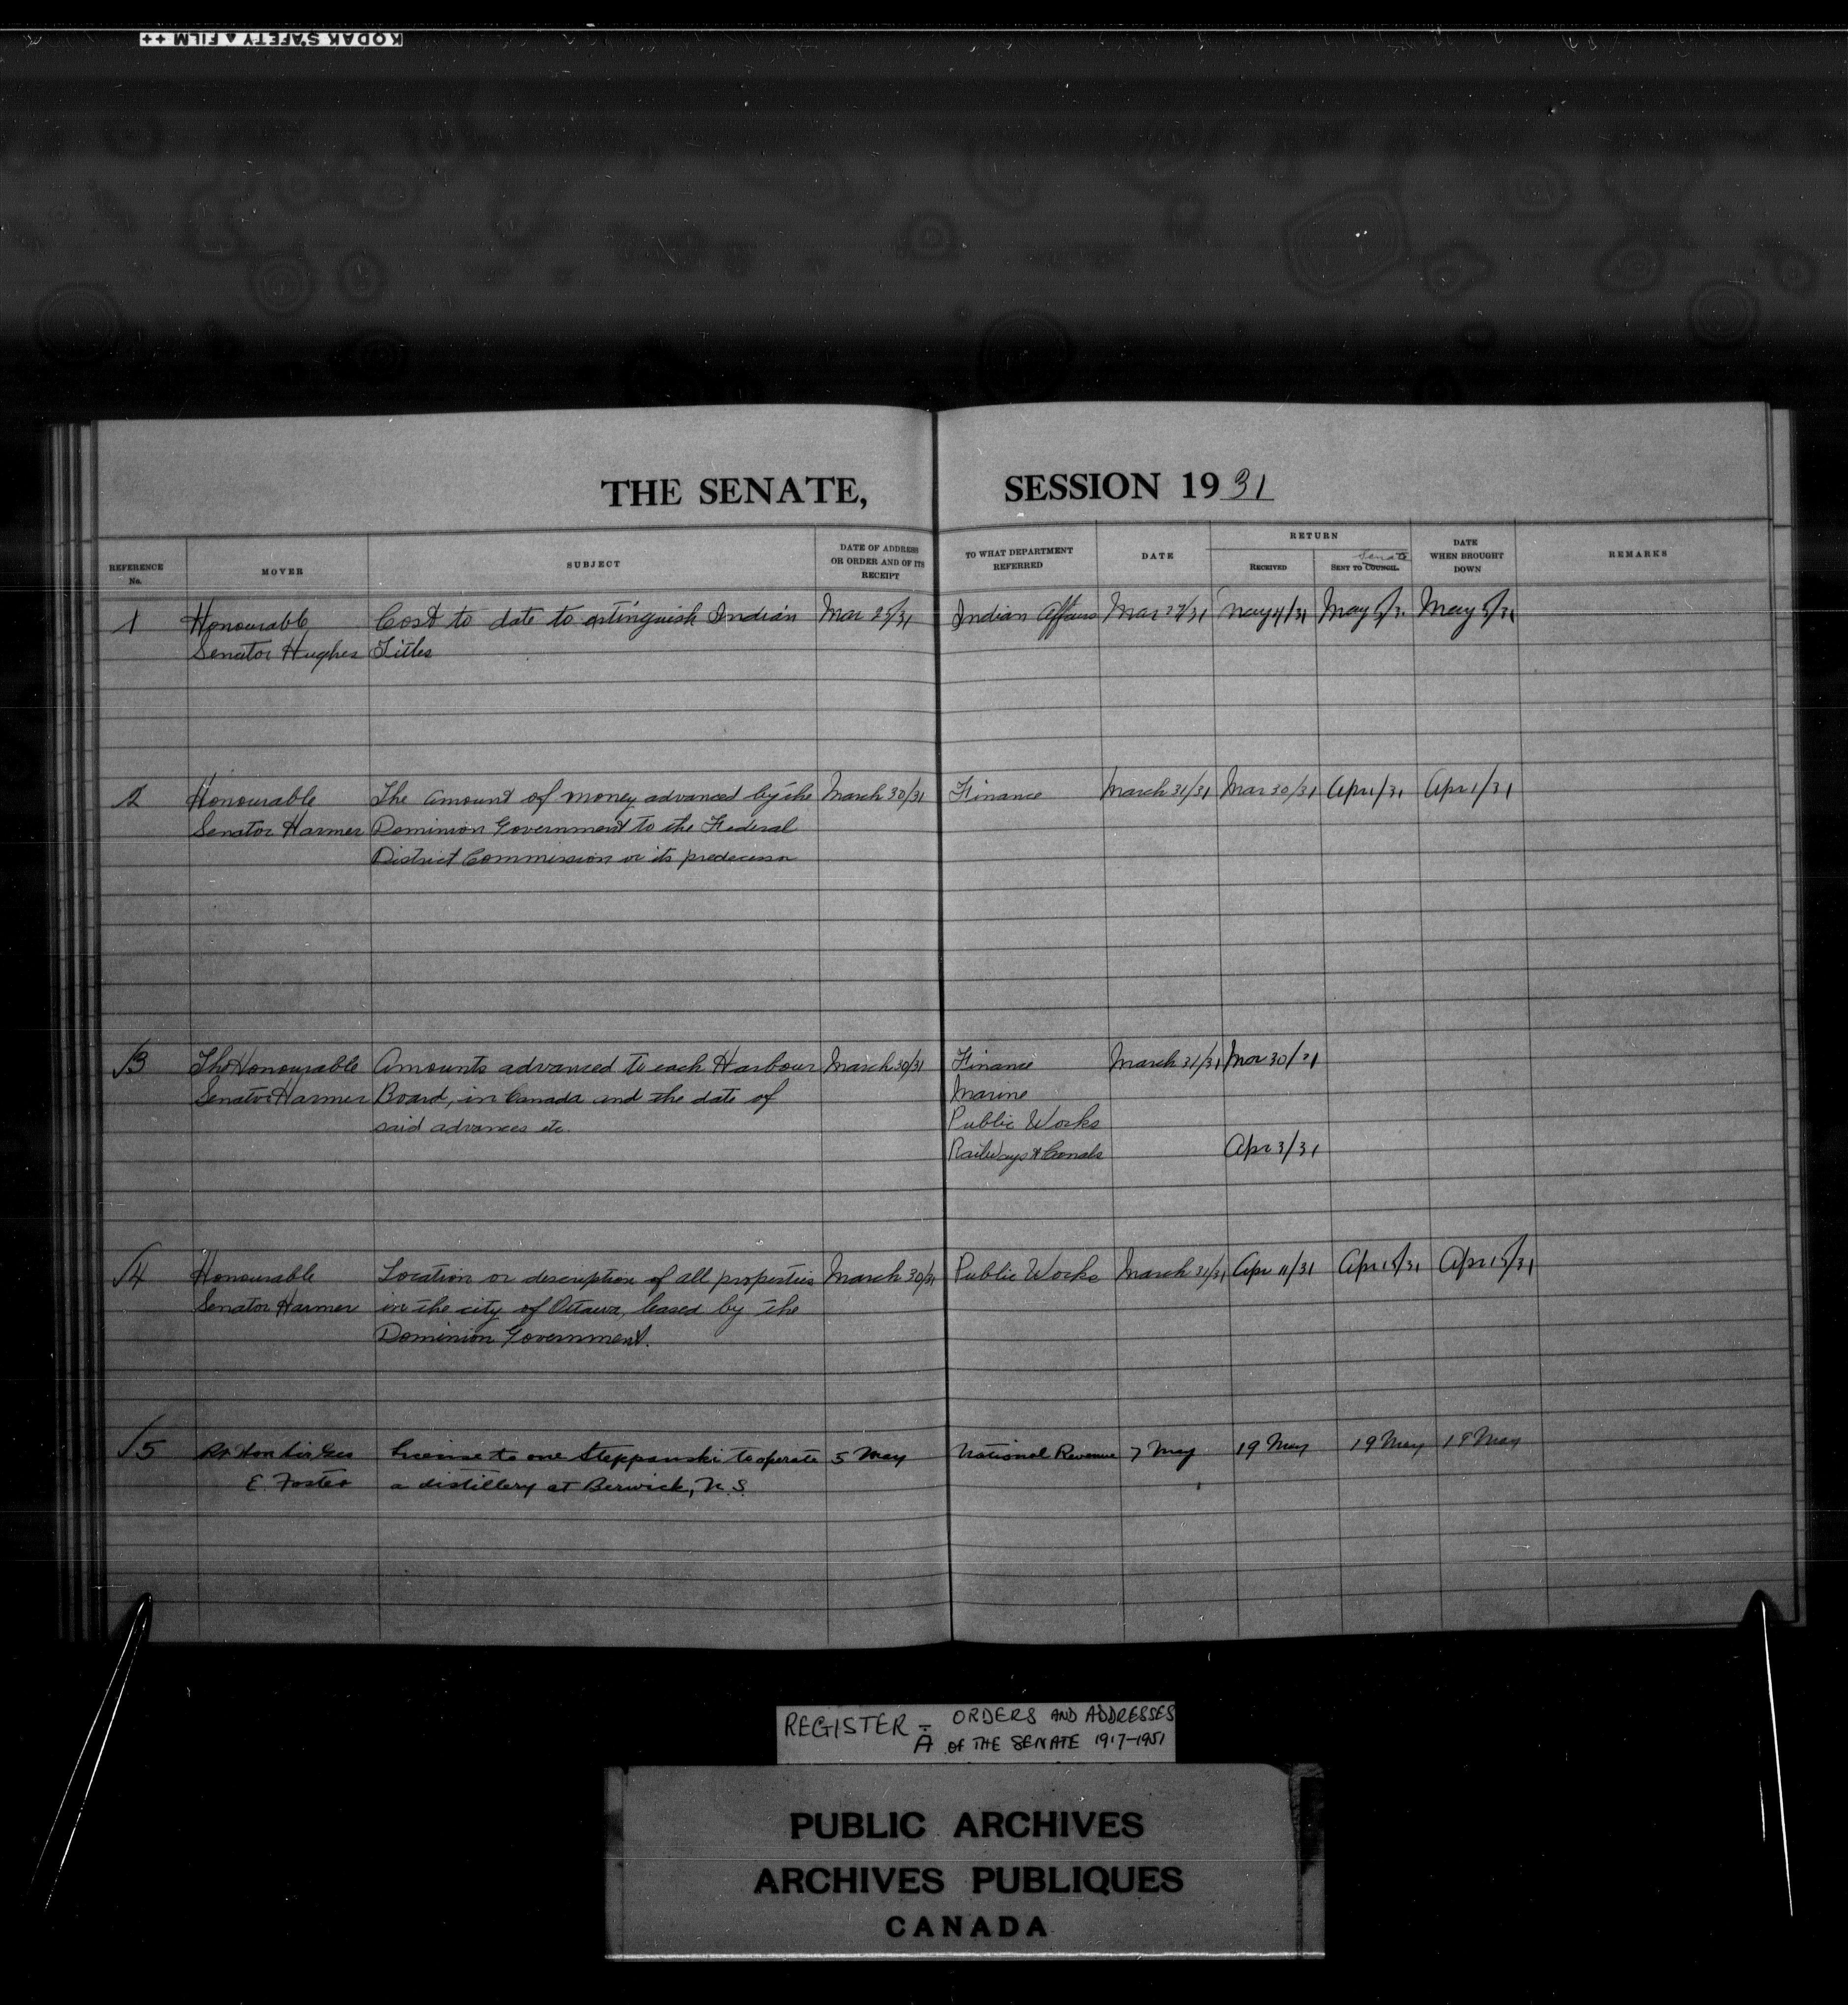 KODAK SAFETY FILM ++
THE SENATE, SESSION 1931
REFERENCE No. MOVER SUBJECT DATE OF ADDRESS OR ORDER AND OF ITS RECEIPT TO WHAT DEPARTMENT REFERRED DATE RETURN RECEIVED SENT TO COUNCIL Senate DATE WHEN BROUGHT DOWN REMARKS
1 Honourable Cost to date to extinguish Indian Mar 25/31 Indian Affairs Mar 27/31 May 4/31 May 5/31 May 5/31
Senator Hughes Titles
2 Honourable The amount of money advanced by the March 30/31 Finance March 31/31 Mar 30/31 Apr 1/31 Apr 1/31
Senator Harmer Dominion Government to the Federal
District Commission or its predecessor
√3 The Honourable Amounts advanced to each Harbour March 30/31 Finance March 31/31 Mar 30/31
Senator Harmer Board, in Canada and the date of Marine
said advances etc. Public Works
Railways & Canals Apr 3/31
√4 Honourable Location or description of all properties March 30/31 Public Works March 31/31 Apr 11/31 Apr 15/31 Apr 15/31
Senator Harmer in the city of Ottawa, leased by the
Dominion Government.
√5 Rt Hon Sir Geo License to one Steppanski to operate 5 May National Revenue 7 May 19 May 19 May 19 May
E. Foster a distillery at Berwick, N.S.
REGISTER - ORDERS AND ADDRESSES
A OF THE SENATE 1917-1951
PUBLIC ARCHIVES
ARCHIVES PUBLIQUES
CANADA